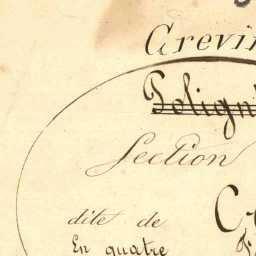 Grevin
Polign
Section
dite de C
En quatre F